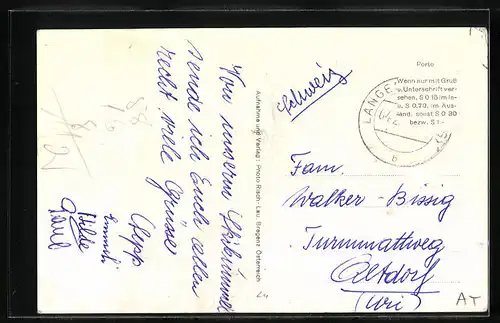 Von unserem Skihimmel
sende ich Euch allen
recht viele Grüsse
Sepp
Emmi
Hilde
Paul
Aufnahme und Verlag: Photo Risch-Lau, Bregenz Österreich
Schweiz
Porto
Wenn nur mit Gruß
u. Unterschrift ver-
sehen, S 0.15 im In-
S 0.70, im Aus-
land, sonst S 0 80
bezw. S 1.-
LANGE
Fam.
Walker-Bissig
Turmmattweg
Altdorf
(Uri)
AT